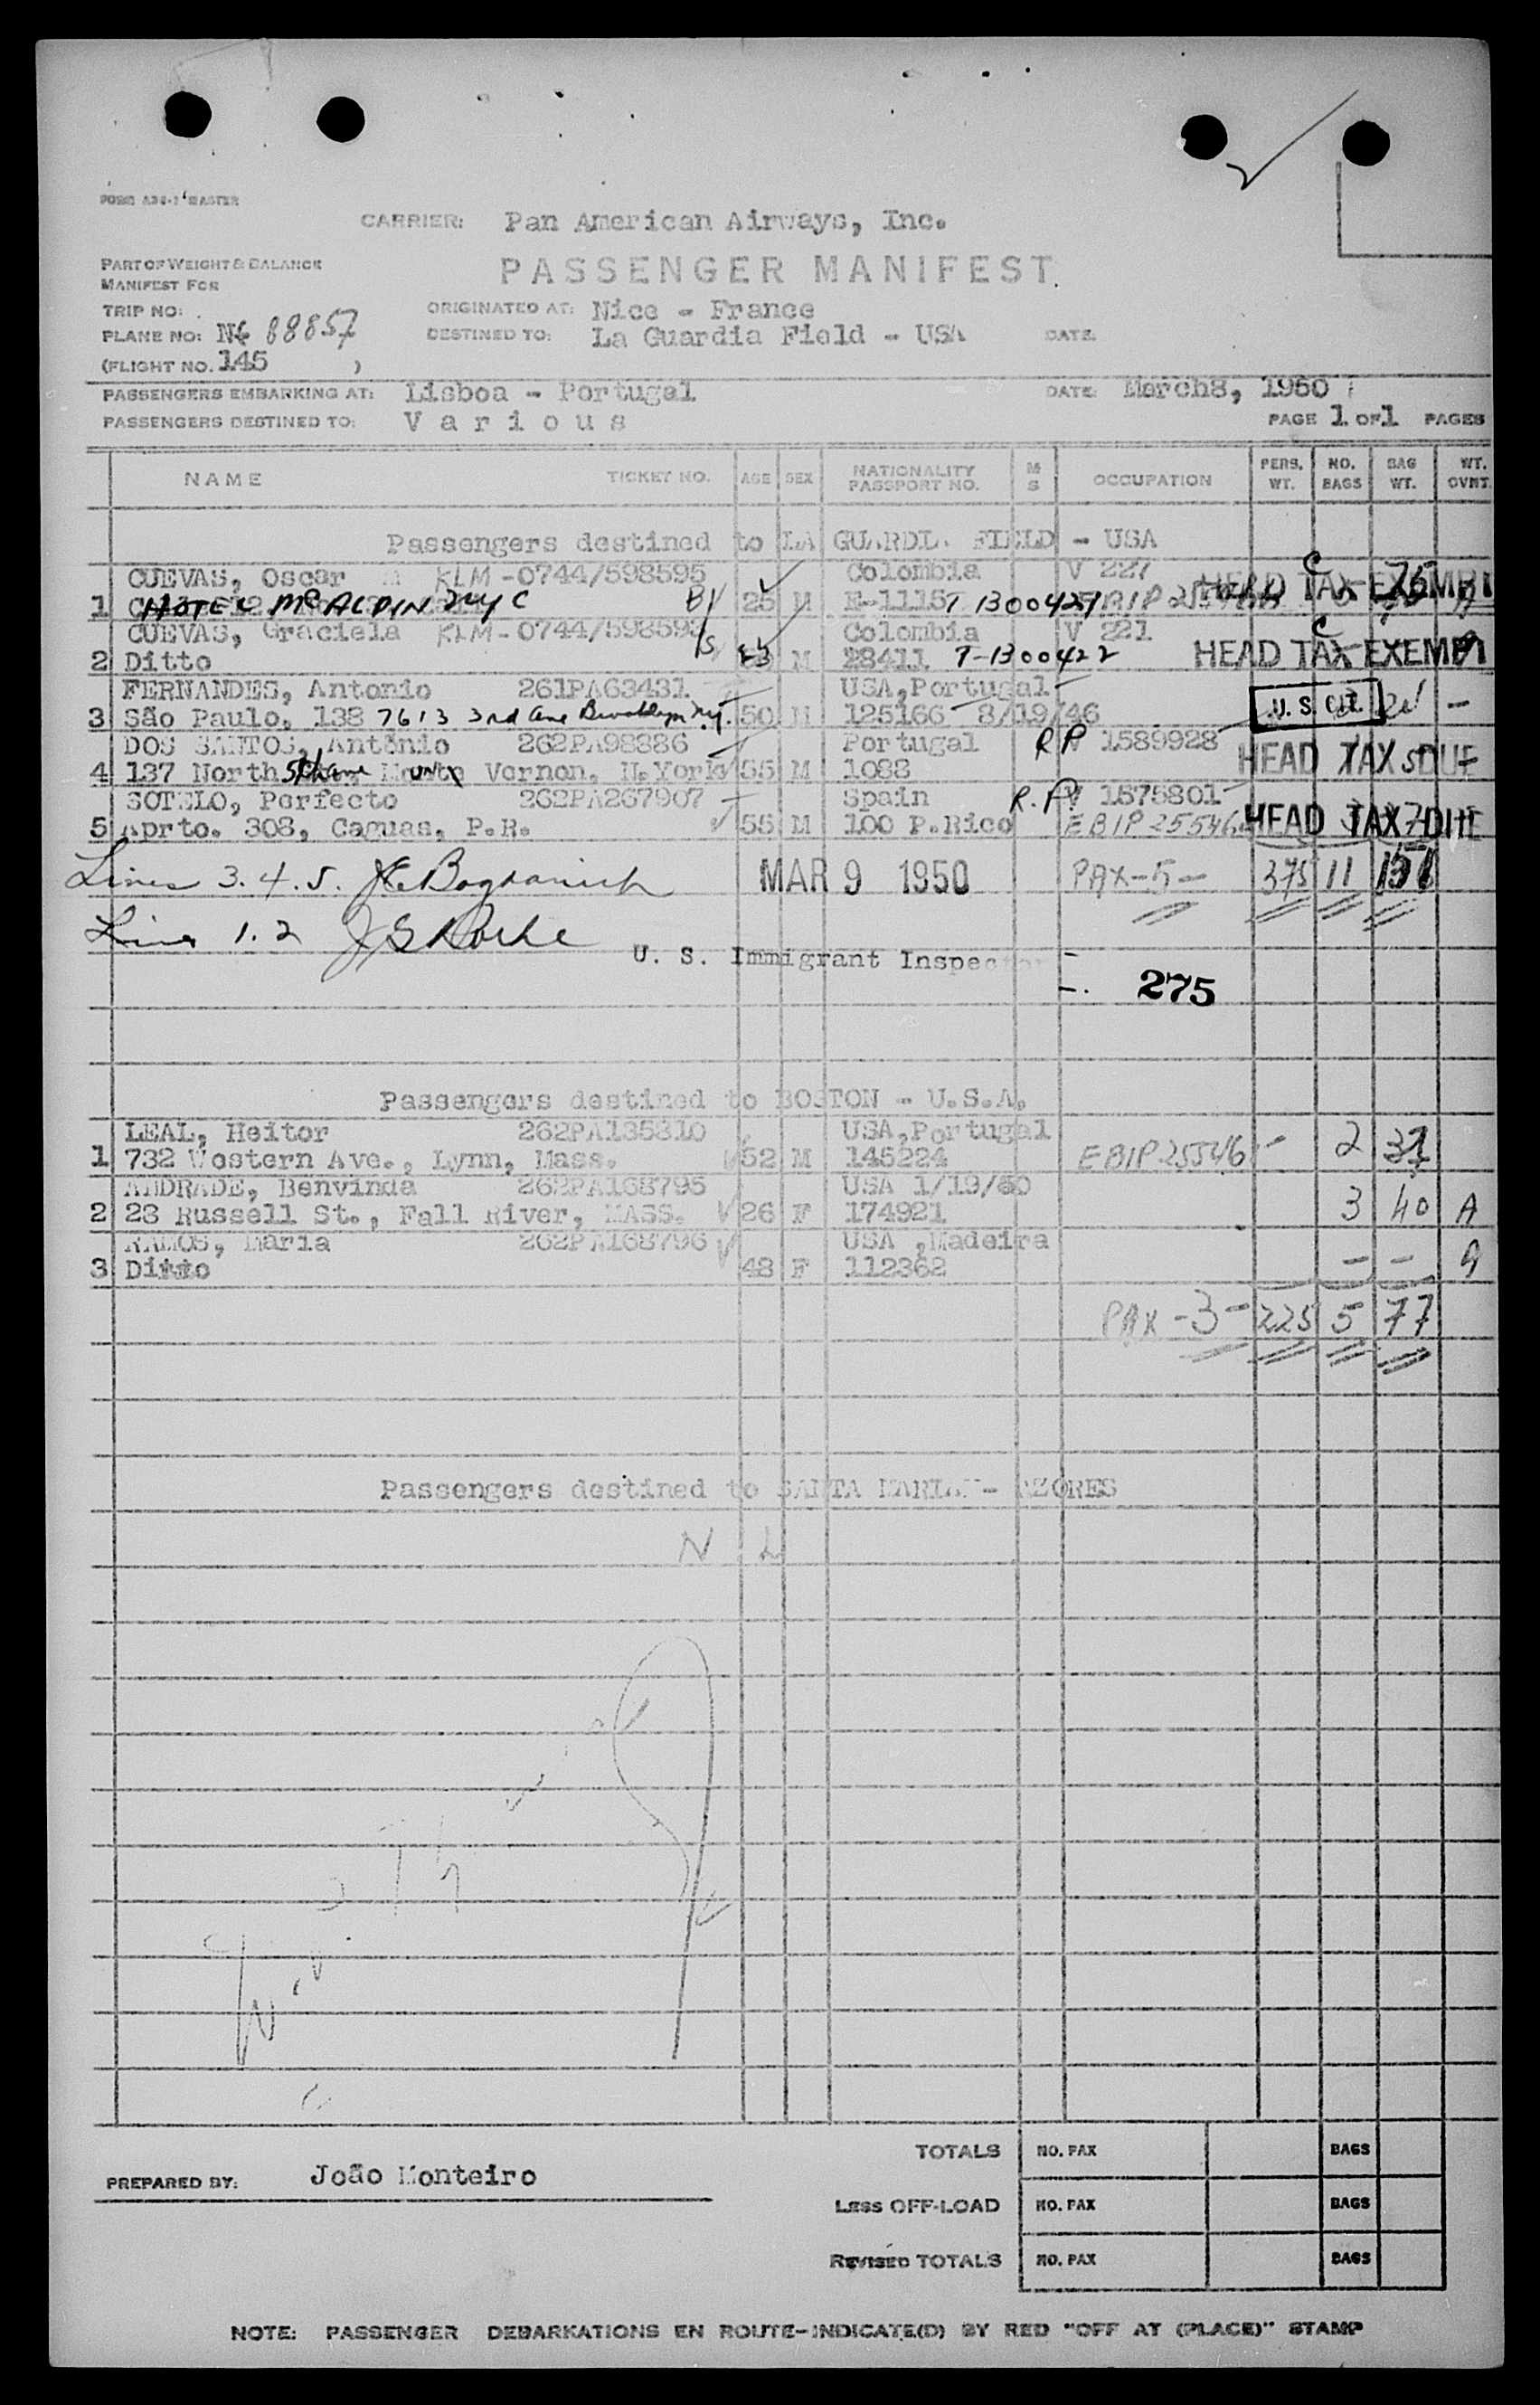 FORM A34-1 MASTER
CARRIER: Pan American Airways, Inc.
PART OF WEIGHT & BALANCE
MANIFEST FOR
PASSENGER MANIFEST
TRIP NO:
ORIGINATED AT: Nice - France
PLANE NO: 88857
DESTINED TO: La Guardia Field - USA DATE:
(FLIGHT NO. 145 )
PASSENGERS EMBARKING AT: Lisboa - Portugal DATE: March8, 1950
PASSENGERS DESTINED TO: Various PAGE 1 OF 1 PAGES
NAME TICKET NO. AGE SEX NATIONALITY PASSPORT NO. M S OCCUPATION PERS. WT. NO. BAGS BAG WT. WT. OVNT.
Passengers destined to LA GUARDIA FIELD - USA
CUEVAS, Oscar KLM-0744/598595 Colombia V 227
1 HOTEL McALPIN NYC 25 M E-1115 T 1300421 HEAD TAX EXEMPT
CUEVAS, Graciela KLM-0744/59859 Colombia V 221
2 Ditto 28411 T-1300422 HEAD TAX EXEMPT
FERNANDES, Antonio 261PA63431 USA,Portugal
3 São Paulo, 138 7613 3rd Ave Brooklyn N.Y. 50 M 125166 8/19/46 U.S. CIT.
DOS SANTOS, António 262PA98386 Portugal RP V 1589928
4 137 North 5th Ave Vernon, N.York 55 M 1088 HEAD TAX DUE
SOTELO, Perfecto 262PA267907 Spain R.P. V 1575801
5 Aprto. 308, Caguas, P.R. 55 M 100 P.Rico EBIP 25546 HEAD TAX DUE
Lines 3.4.5. MAR 9 1950 PAX-5- 375 11
Lines 1.2
U. S. Immigrant Inspector
275
Passengers destined to BOSTON - U.S.A.
LEAL, Heitor 262PA135310 USA,Portugal
1 732 Western Ave., Lynn, Mass. 52 M 145224 EBIP 25546 2 37
ANDRADE, Benvinda 262PA168795 USA 1/19/50
2 23 Russell St., Fall River, MASS. 26 F 174921 3 40 A
RAMOS, Maria 262PA168796 USA ,Madeira
3 Ditto 48 F 112362 - -
PAX -3- 225 5 77
Passengers destined to SANTA MARIA - AZORES
TOTALS NO. PAX BAGS
PREPARED BY: João Monteiro
LESS OFF-LOAD NO. PAX BAGS
REVISED TOTALS NO. PAX BAGS
NOTE: PASSENGER DEBARKATIONS EN ROUTE-INDICATE(D) BY RED "OFF AT (PLACE)" STAMP